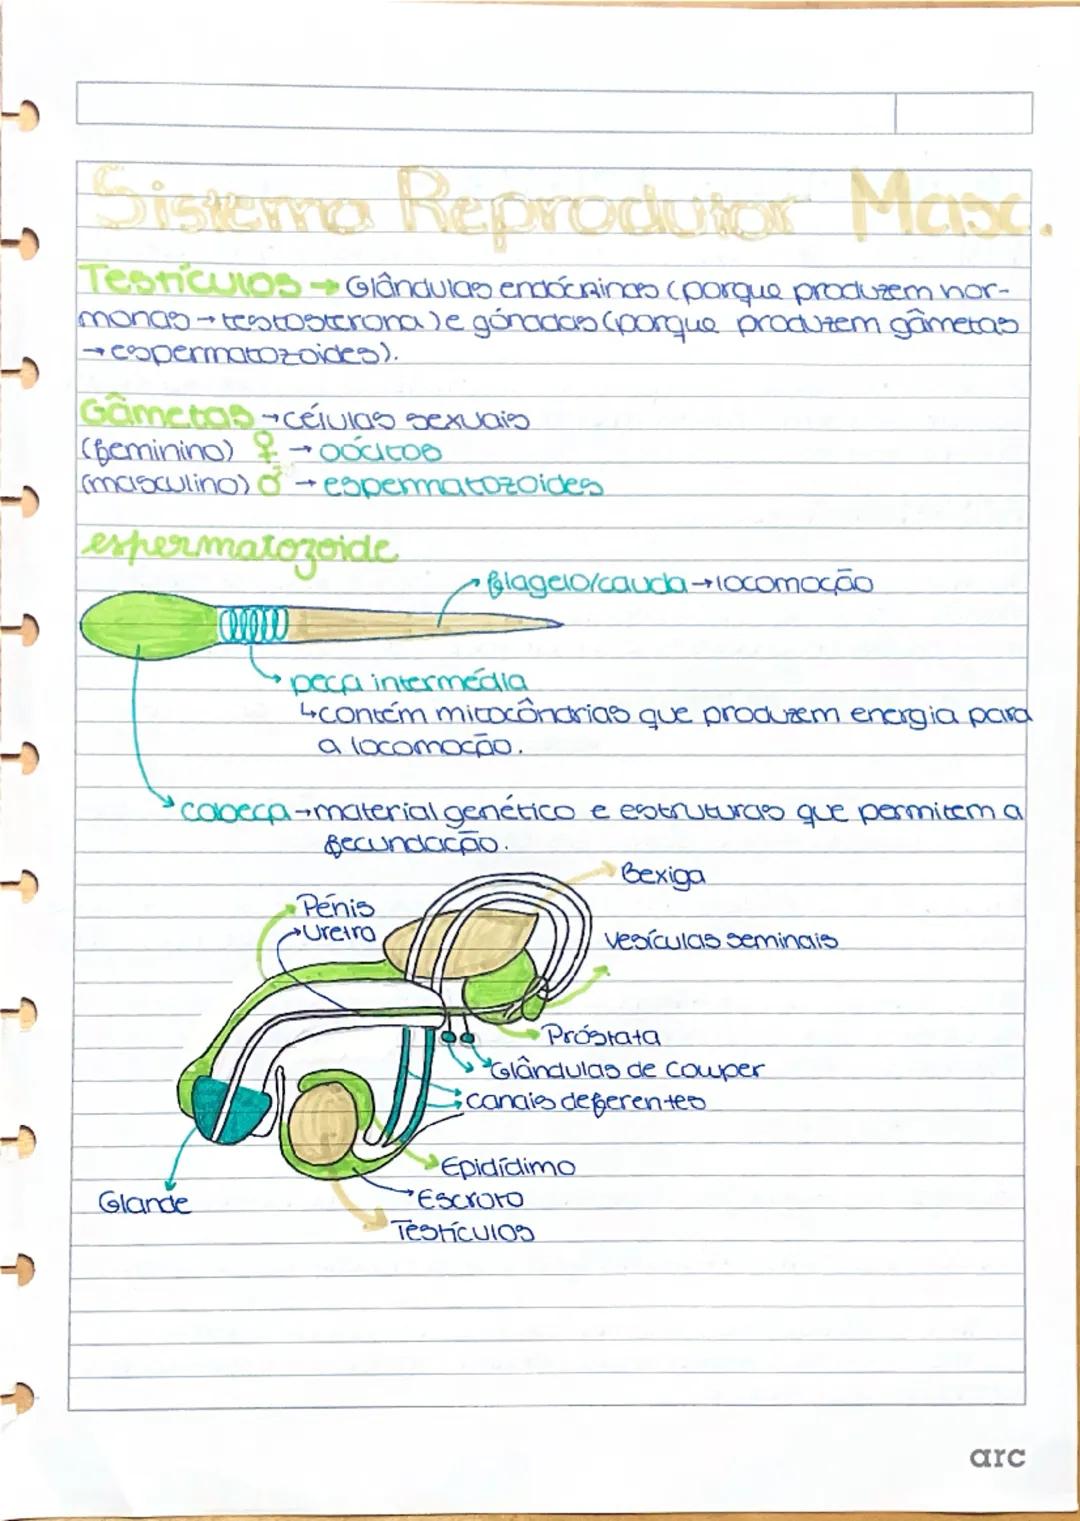 Sistema Reprodutor Masc.
Testículos → Glândulas endócrinas (porque produzem hor-
monas → testosterona) e gónadas (porque produzem gâmetas
→ espermatozoides).
Gâmetas → células sexuais
(feminino) ♀ → oócitos
(masculino) ♂ → espermatozoides
espermatozoide
flagelo/cauda → locomoção
peça intermédia
↳ contém mitocôndrias que produzem energia para
a locomoção.
cabeça → material genético e estruturas que permitem a
fecundação.
Bexiga
Pénis
Uretra
Vesículas seminais
Próstata
Glândulas de Cowper
canais deferentes
Epidídimo
Glande
Escroto
Testículos
arc